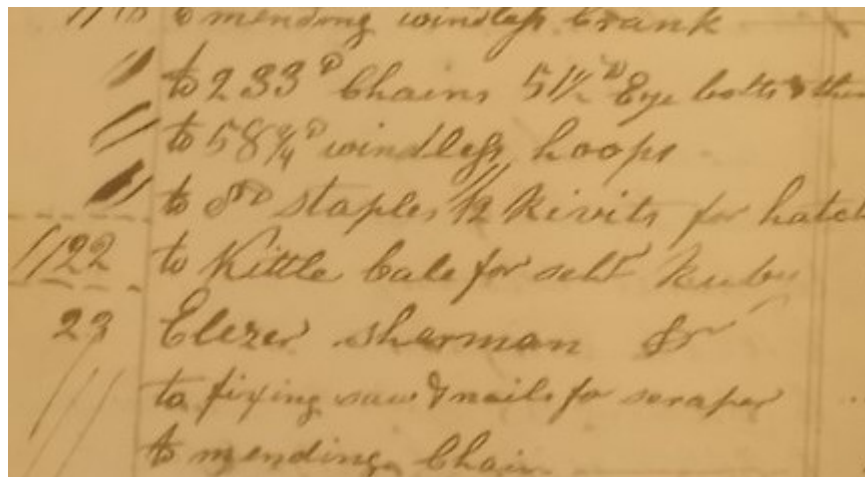 to mending windless Crank
" to 233 D Chains 51 1/2 D Eye bolts &
" to 58 3/4 D windless hoops
" to 8 D staples 12 Rivits for hatch
1122 to Kittle bale for schr Ruby
23 Elezer sherman Dr
to fixing saw & nails for scraper
to mending Chain